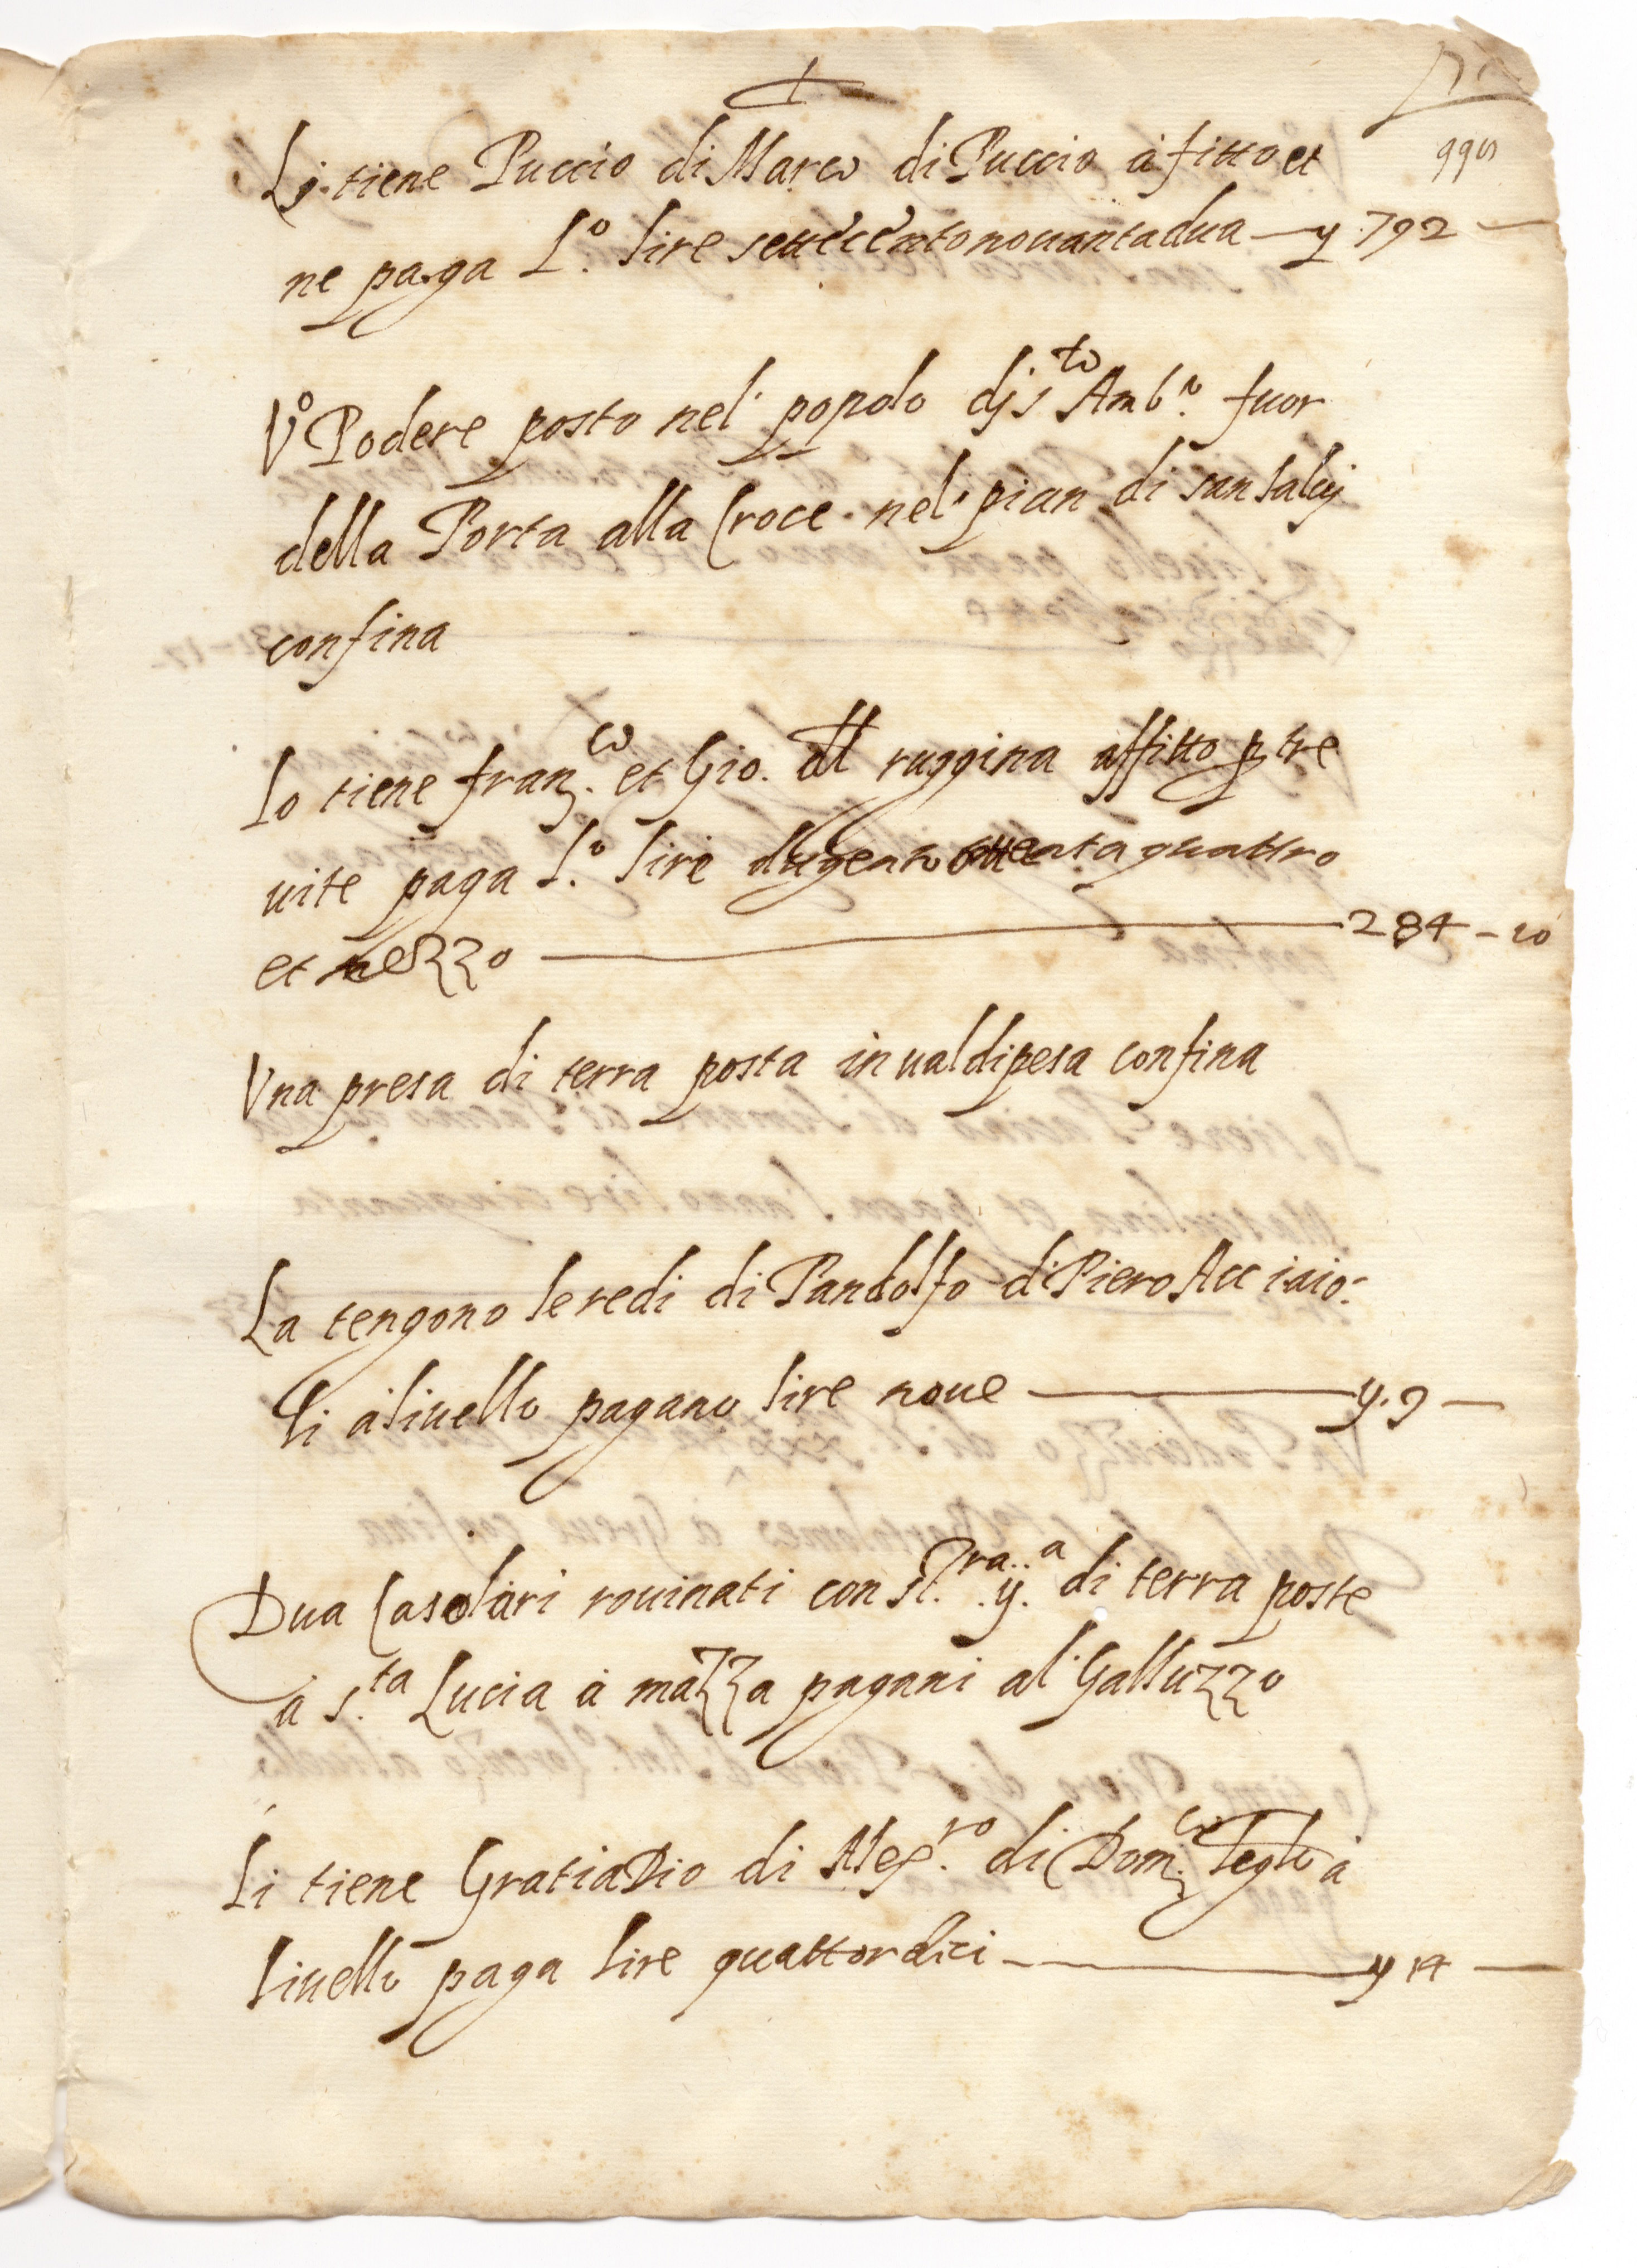 Li tiene Puccio di Marco di Puccio à fitto et
ne paga l.º lire settecentonouantadua — y 792 —
Vº Podere posto nel popolo di s.to Amb.º fuor
della Porta alla Croce nel pian di san salvj
confina
lo tiene fran.co et Gio. del ruggina affitto p tre
uite paga l.º lire dugento ottentaquattro
et mezzo — 284 - 10
Vna presa di terra posta in ualdipesa confina
La tengono leredi di Pandolfo di Piero Acciaio:
li à liuello pagano lire noue — y. 9 —
Dua Casolari rouinati con st.ra .y.a di terra poste
à s.ta Lucia à mazza pagani al Galluzzo
li tiene GratiaDio di Aless.ro di Dom.co à
liuello paga lire quattordici — y 14 —